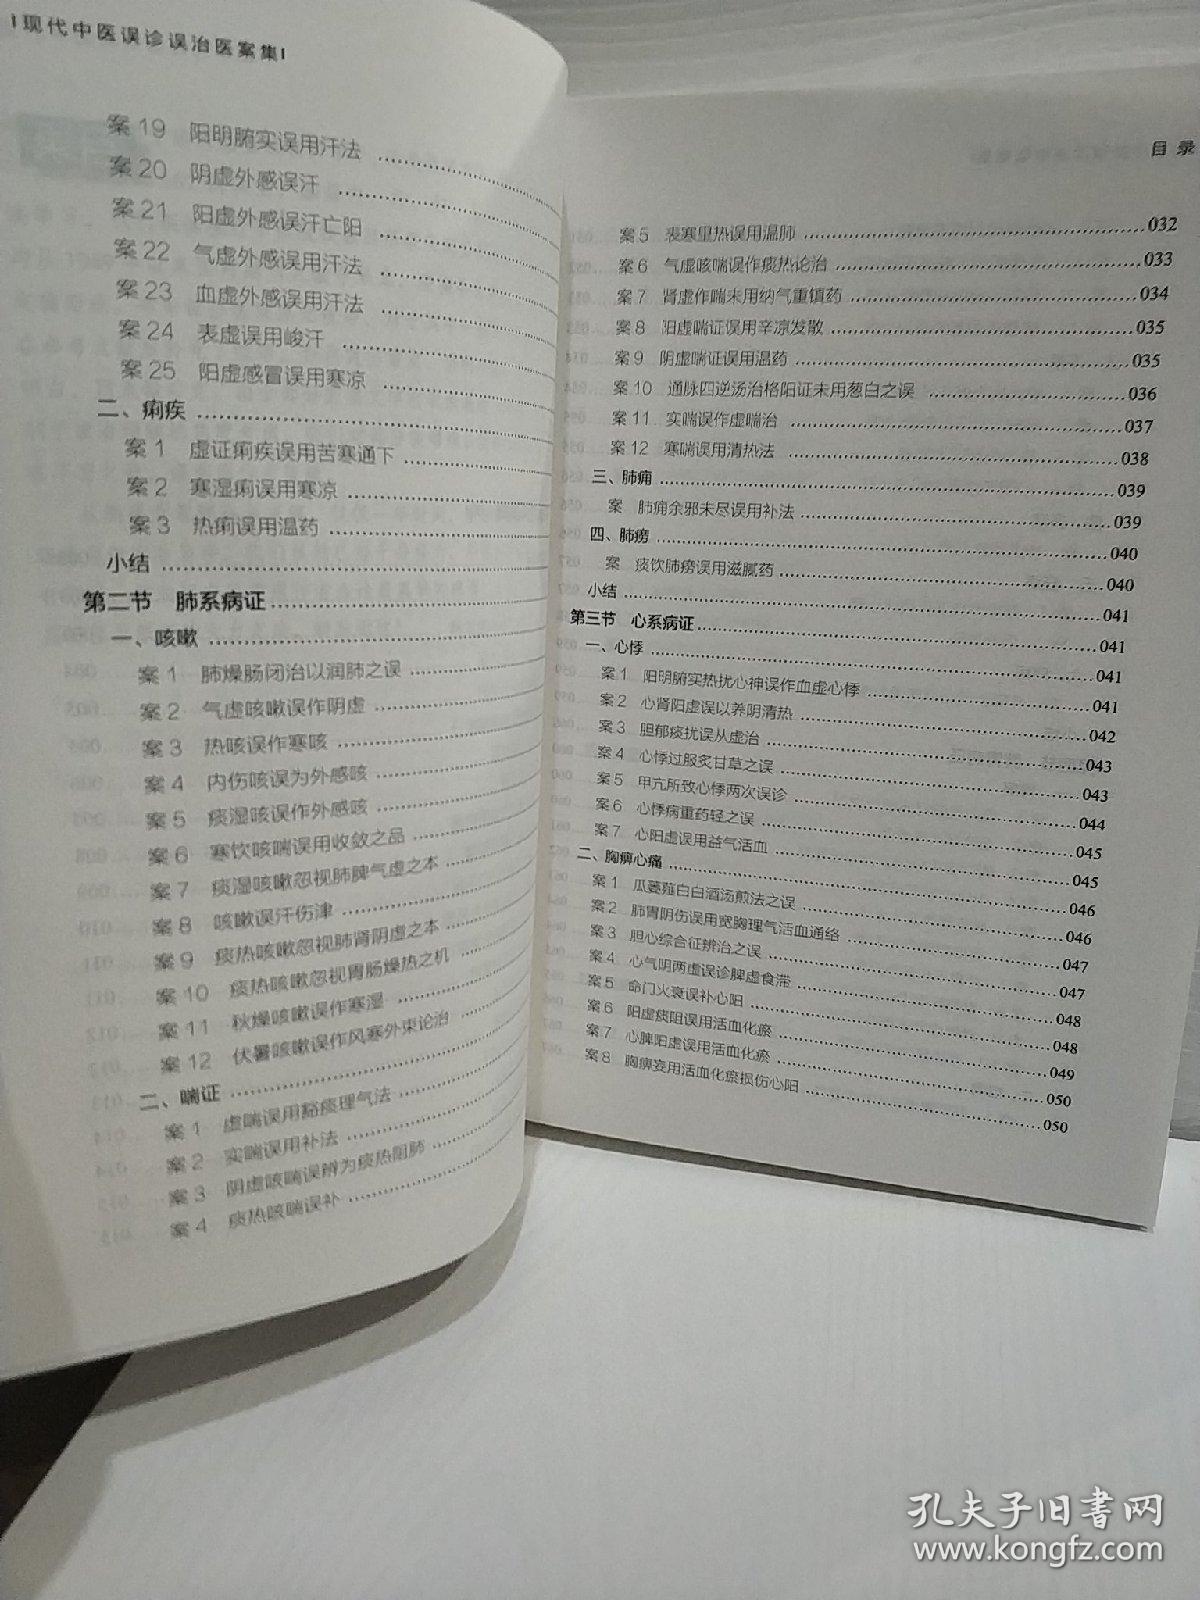 现代中医误诊误治医案集
案19 阳明腑实误用汗法
案20 阴虚外感误汗
案21 阳虚外感误汗亡阳
案22 气虚外感误用汗法
案23 血虚外感误用汗法
案24 表虚误用峻汗
案25 阳虚感冒误用寒凉
二、痢疾
案1 虚证痢疾误用苦寒通下
案2 寒湿痢误用寒凉
案3 热痢误用温药
小结
第二节 肺系病证
一、咳嗽
案1 肺燥肠闭治以润肺之误
案2 气虚咳嗽误作阴虚
案3 热咳误作寒咳
案4 内伤咳误为外感咳
案5 痰湿咳误作外感咳
案6 寒饮咳喘误用收敛之品
案7 痰湿咳嗽忽视肺脾气虚之本
案8 咳嗽误汗伤津
案9 痰热咳嗽忽视肺肾阴虚之本
案10 痰热咳嗽忽视胃肠燥热之机
案11 秋燥咳嗽误作寒湿
案12 伏暑咳嗽误作风寒外束论治
二、喘证
案1 虚喘误用豁痰理气法
案2 实喘误用补法
案3 阴虚咳喘误辨为痰热阻肺
案4 痰热咳喘误补
目录
案5 表寒里热误用温肺 032
案6 气虚咳喘误作痰热论治 033
案7 肾虚作喘未用纳气重镇药 034
案8 阳虚喘证误用辛凉发散 035
案9 阴虚喘证误用温药 035
案10 通脉四逆汤治格阳证未用葱白之误 036
案11 实喘误作虚喘治 037
案12 寒喘误用清热法 038
三、肺痈 039
案 肺痈余邪未尽误用补法 039
四、肺痨 040
案 痰饮肺痨误用滋腻药 040
小结 041
第三节 心系病证 041
一、心悸 041
案1 阳明腑实热扰心神误作血虚心悸 041
案2 心肾阳虚误以养阴清热 042
案3 胆郁痰扰误从虚治 043
案4 心悸过服炙甘草之误 043
案5 甲亢所致心悸两次误诊 044
案6 心悸病重药轻之误 045
案7 心阳虚误用益气活血 045
二、胸痹心痛 046
案1 瓜蒌薤白白酒汤煎法之误 046
案2 肺胃阴伤误用宽胸理气活血通络 047
案3 胆心综合征辨治之误 047
案4 心气阴两虚误诊脾虚食滞 048
案5 命门火衰误补心阳 048
案6 阳虚痰阻误用活血化瘀 049
案7 心脾阳虚误用活血化瘀 050
案8 胸痹妄用活血化瘀损伤心阳 050
孔夫子旧书网
www.kongfz.com